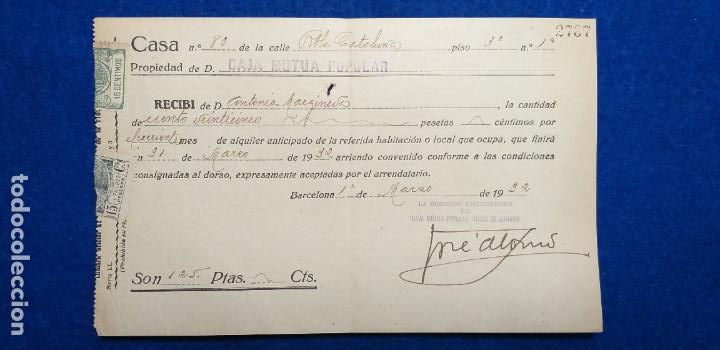 2767
Casa n.º 80 de la calle Rbla Cataluña piso 3º n.º 1ª
Propiedad de D. CAJA MUTUA POPULAR
RECIBI de D. Antonia , la cantidad
de ciento veinticinco pesetas céntimos por
mes de alquiler anticipado de la referida habitación o local que ocupa, que finirá
en 31 de Marzo de 1932 arriendo convenido conforme a las condiciones
consignadas al dorso, expresamente aceptadas por el arrendatario.
Barcelona 1º de Marzo de 1932
LA COMISION LIQUIDADORA
DE
"CAJA MUTUA POPULAR
José Alonso
Son 125 Ptas. Cts.
15 CENTIMOS
Serie LL
(Prohibida
todocoleccion